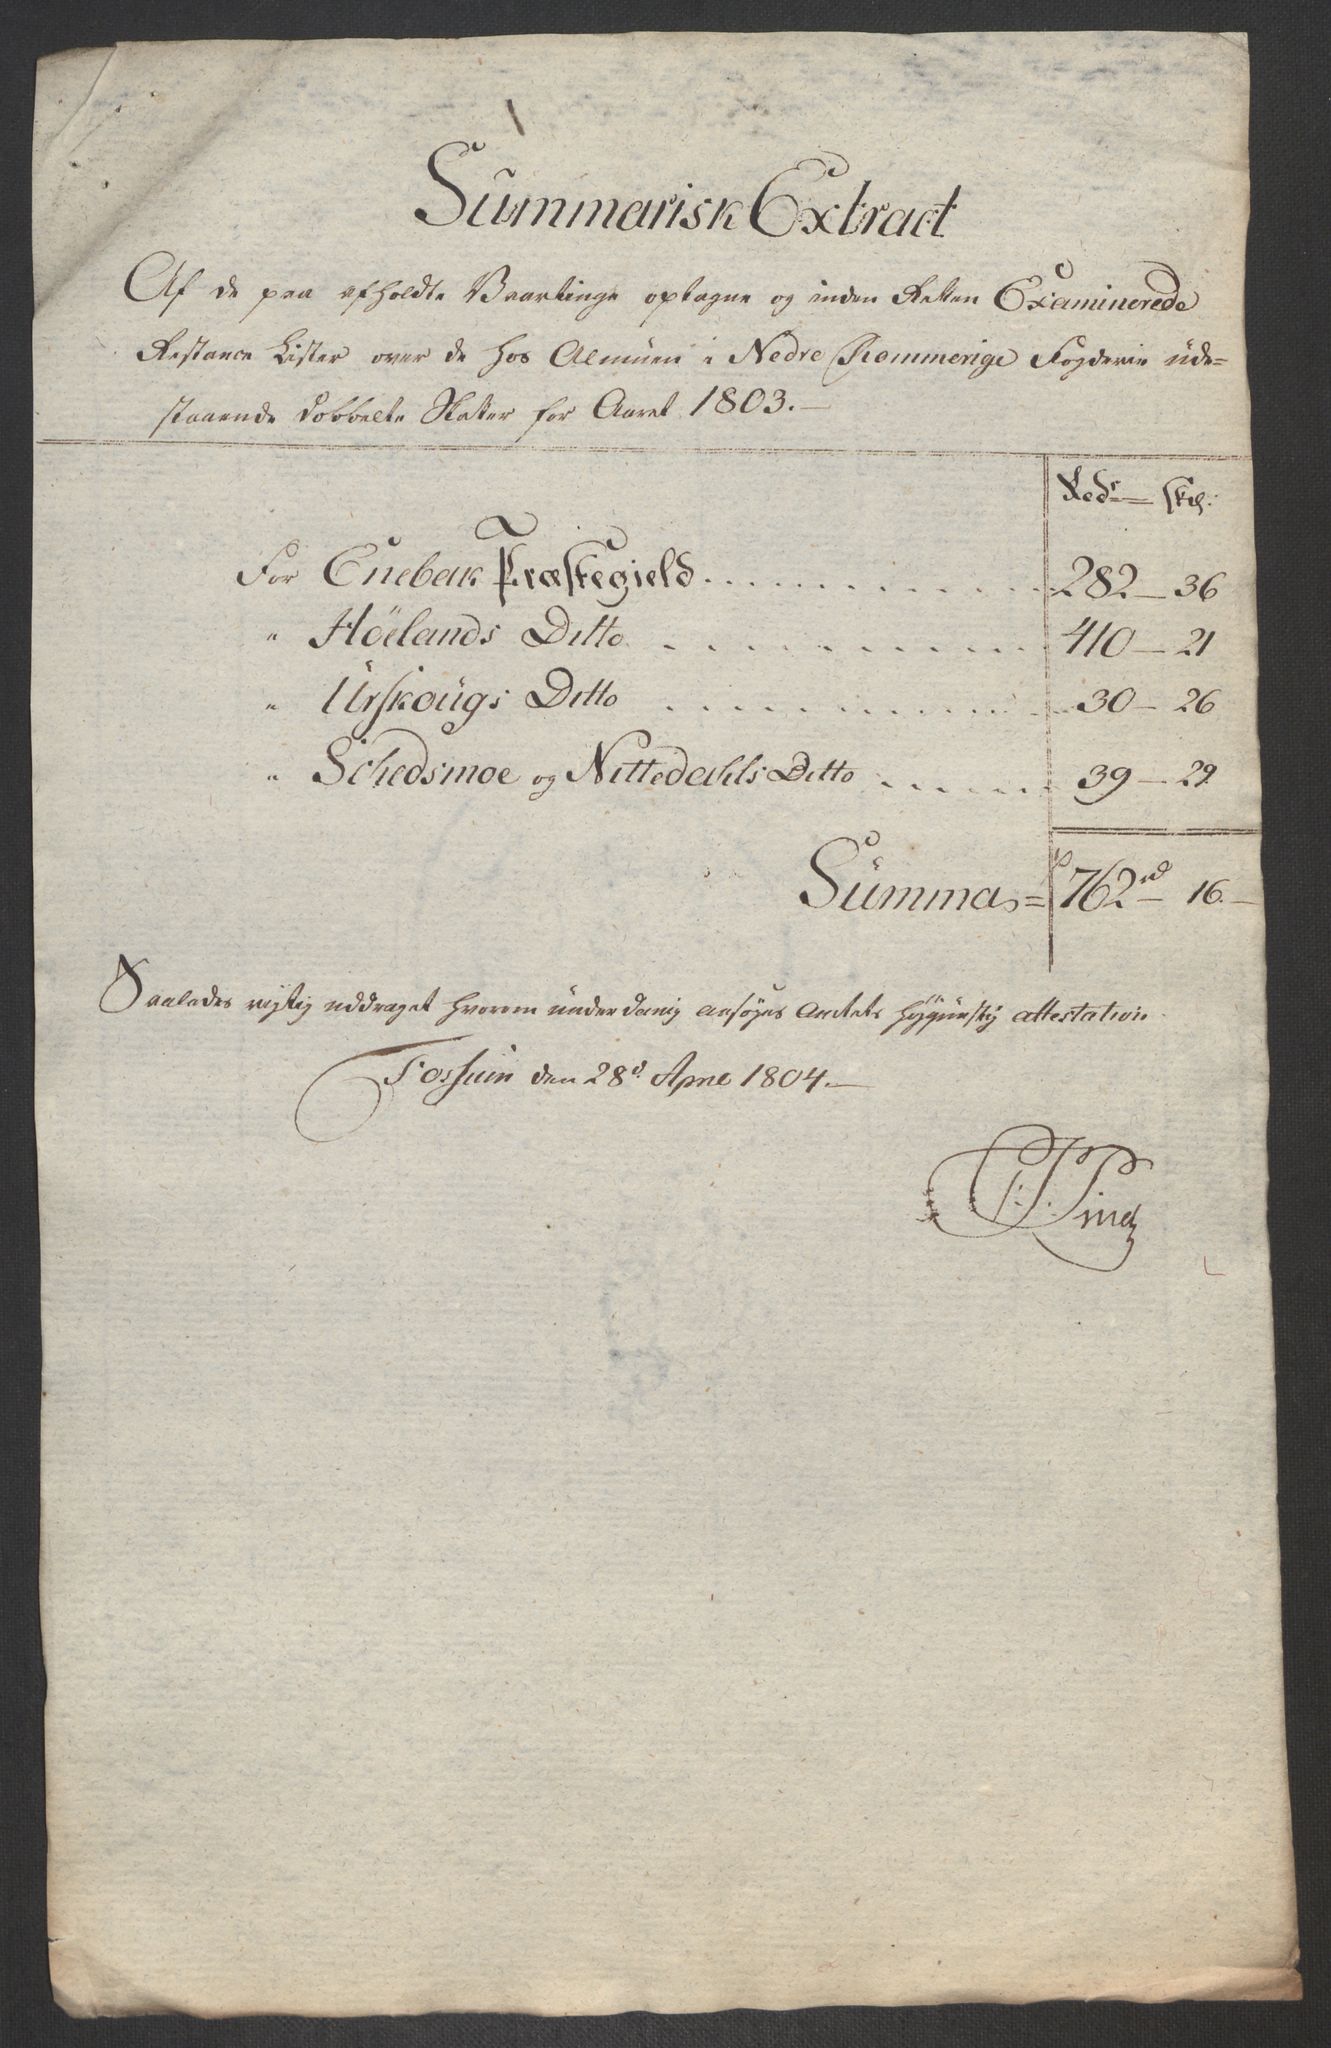 Summarisk Extract
Af de paa afholdte Vaartinge optagne og inden Retten Examinerede
Restance Lister over de hos Almuen i Nedre Rommerige Fogderie ude=
staaende dobbelte Skatter for Aaret 1803.—
Rdr — skl:
For Enebak Præstegield 282 — 36
" Höelands Ditto 410 — 21
" Urskougs Ditto 30 — 26
" Schedsmoe og Nittedahls Ditto 39 — 29
Summa = 762 rd — 16 —
Saaledes rigtig uddraget hvorom underdanig ansøges Amtets høygunstig attestation
Fossum den 28d April 1804.—